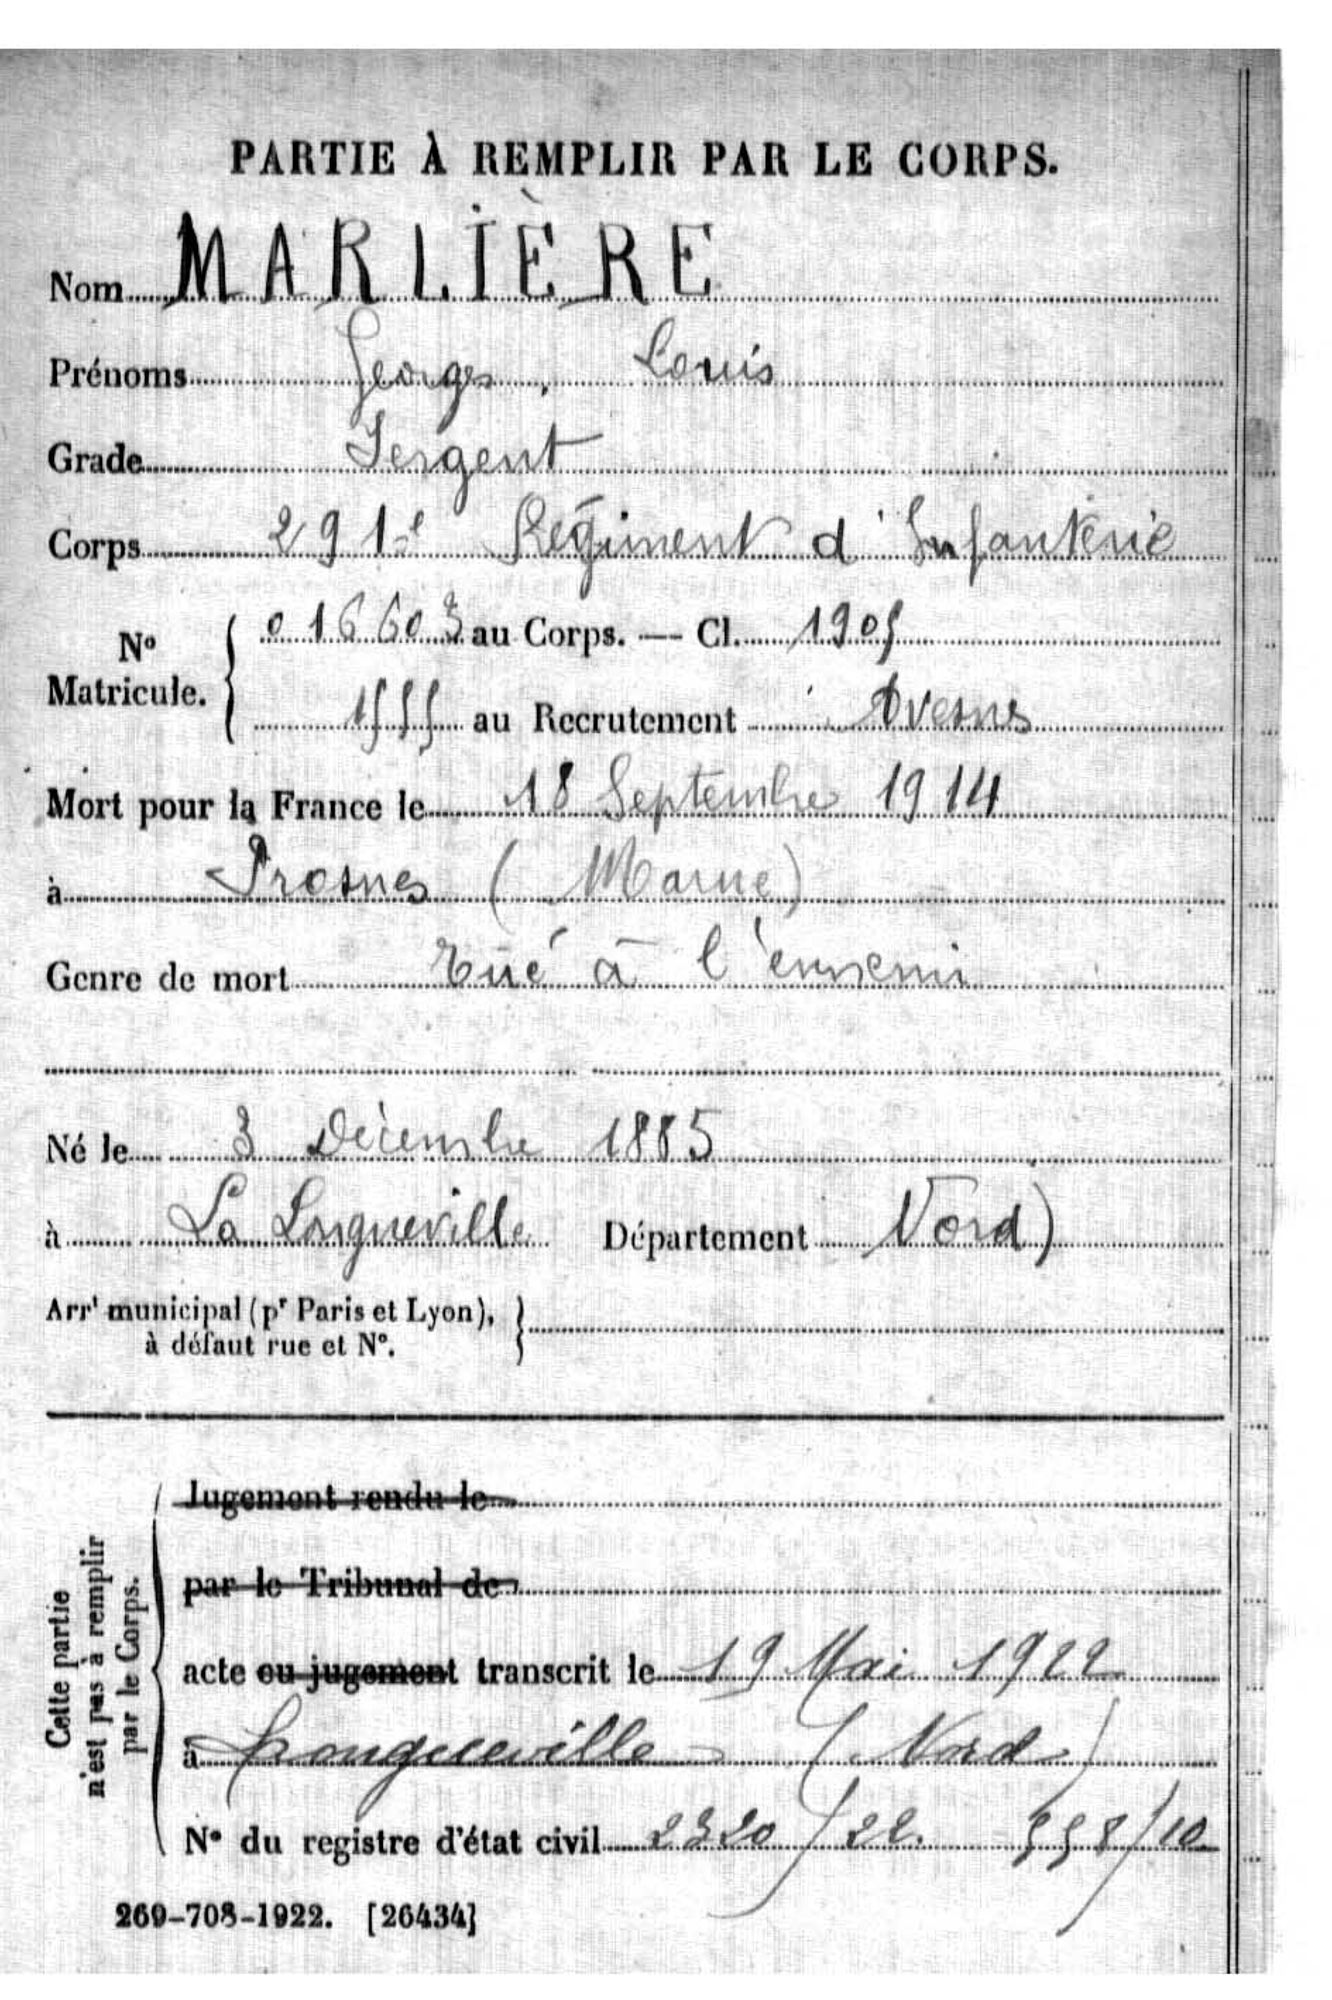 PARTIE À REMPLIR PAR LE CORPS.
Nom MARLIÈRE
Prénoms Georges, Louis
Grade Sergent
Corps 291e Régiment d'Infanterie
No Matricule. { 016603 au Corps. — Cl. 1905
1555 au Recrutement Avesnes
Mort pour la France le 18 Septembre 1914
à Prosnes (Marne)
Genre de mort Tué à l'ennemi
Né le 3 Décembre 1885
à La Longueville Département Nord)
Arrt municipal (pr Paris et Lyon), à défaut rue et No. }
Cette partie n'est pas à remplir par le Corps.
Jugement rendu le
par le Tribunal de
acte ou jugement transcrit le 19 Mai 1922
à Longueville (Nord)
No du registre d'état civil 2320/22. 558/10
269-708-1922. [26434]